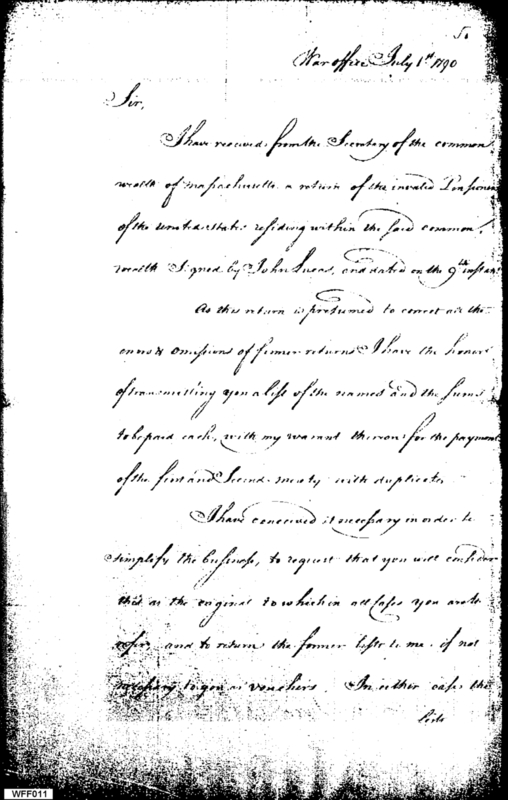 War office July 1st 1790
Sir,
I have received from the Secretary of the common
wealth of Massachusetts a return of the invalid Pensioners
of the United States residing within the said common,
wealth Signed by John Lucas, and dated on the 9th instant
As this return is presumed to correct all the
errors & omissions of former returns I have the honor
of transmitting you a list of the names and the sums
to be paid each, with my warrant thereon for the payment
of the first and Second moiety with duplicates
I have conceived it necessary in order to
simplify the business, to request that you will consider
this as the original to which in all Cases you are to
refer and to return the former lists to me if not
necessary to you as vouchers. In either case the
WFF011